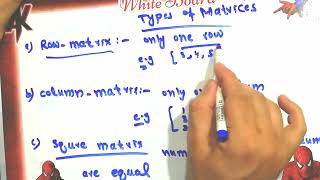 White Board
Types of Matrices
a) Row-matrix:- only one row
e.g [3, 4, 5
b) column-matrix:- only o
e.g
c) Squre matrix num
are equal